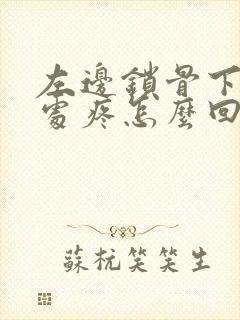 左邊鎖骨下
處疼怎麼回
蘇杭笑笑生